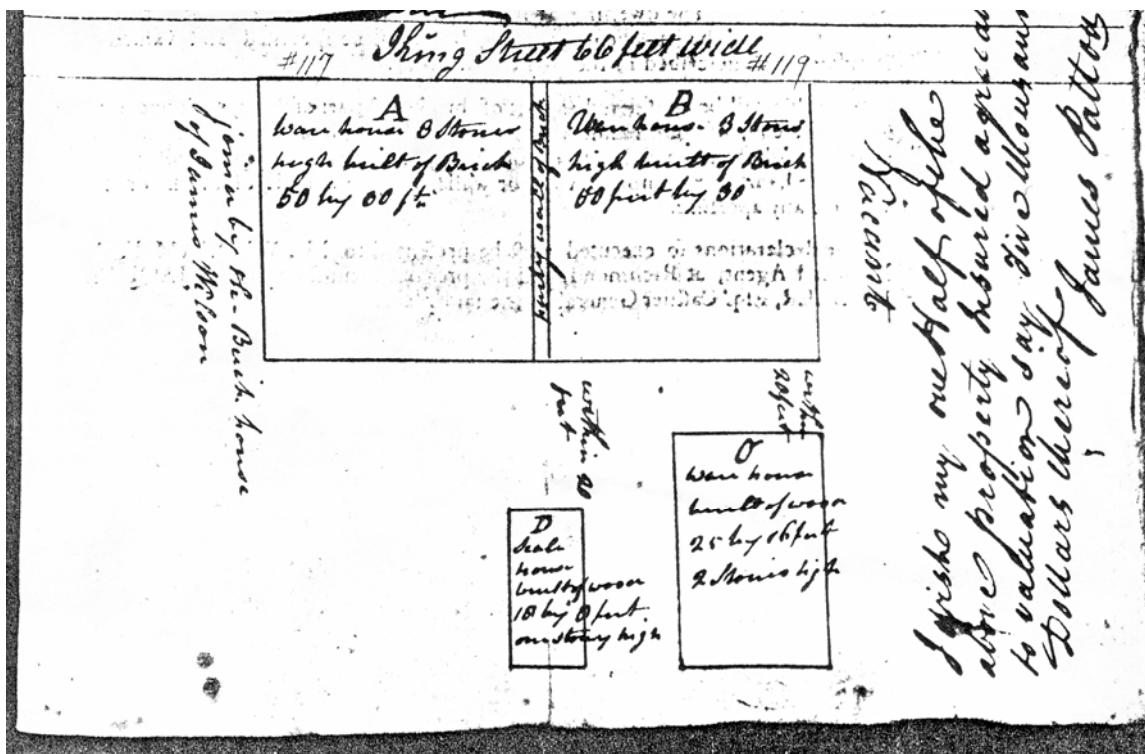 King Street 66 feet wide
#117
#119
A
Ware house 3 Stories
high built of Brick
50 by 30 ft
party wall of Brick
B
Ware house 3 Stories
high built of Brick
50 feet by 30
joined by the Brick house
of James Wilson
Vacant
within 20
feet
within
20 feet
C
Ware house
built of wood
25 by 16 feet
2 Stories high
D
Scale
house
built of wood
18 by 8 feet
one story high
I wish my one Half of the
above property insured agreeable
to valuation say Five Thousand
Dollars thereof
James Patton